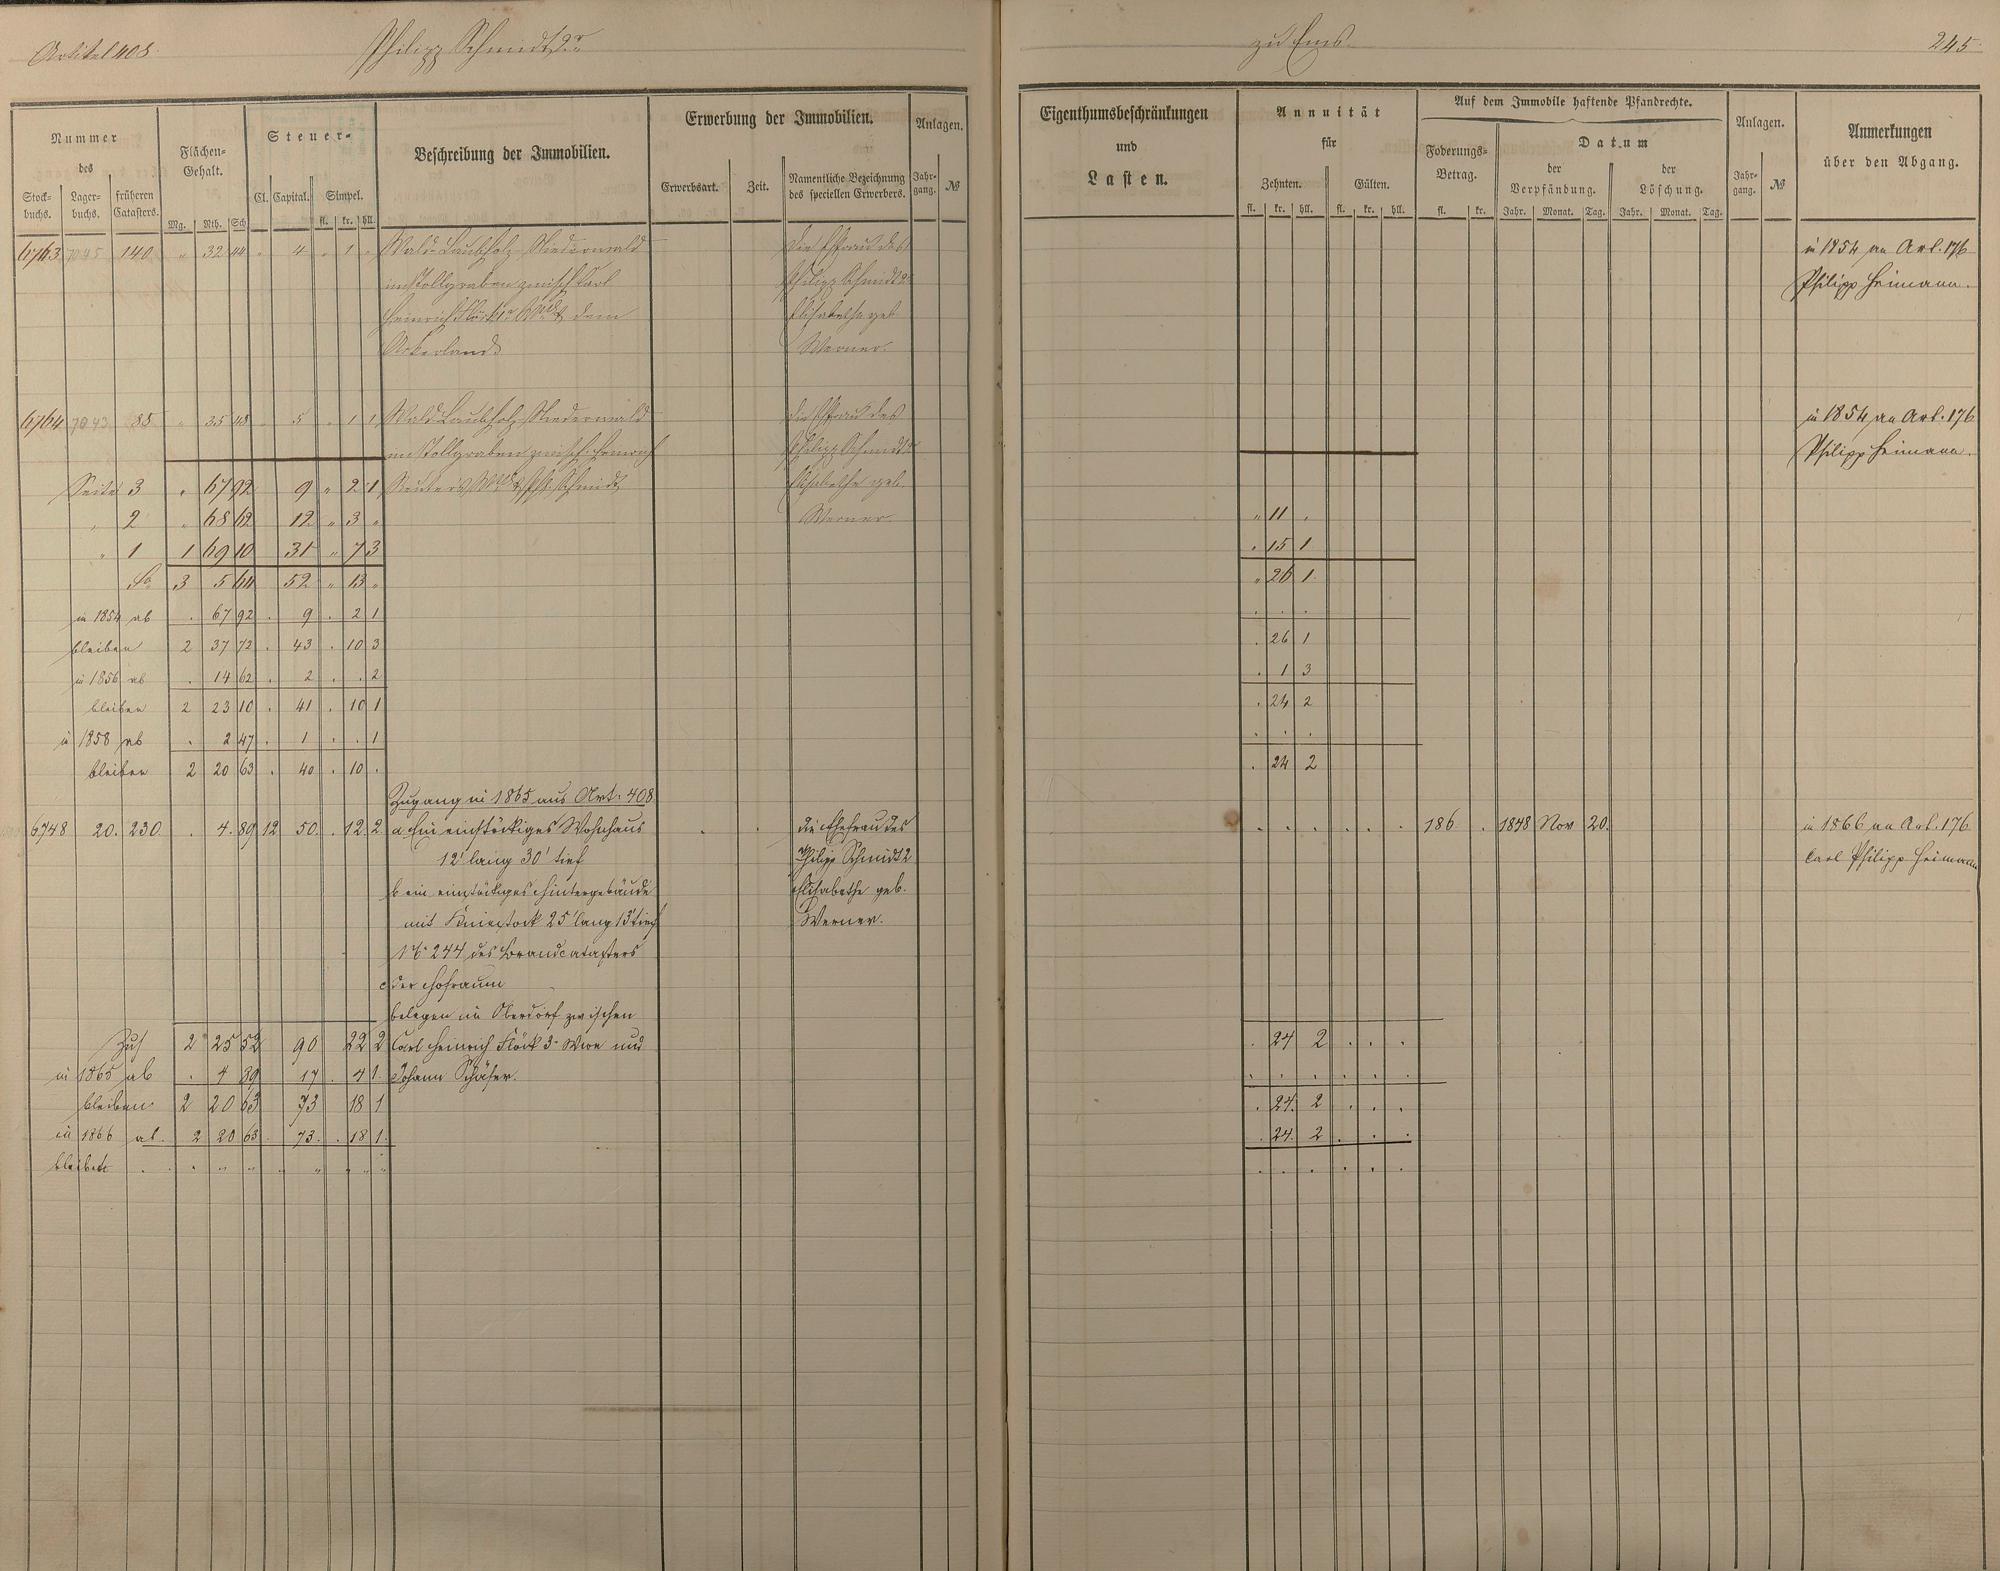 Artikel 408.
Philipp Schmidt 2r
zu Ems.
245.
Nummer
des
Stock-
buchs.
Lager-
buchs.
früheren
Catasters.
Flächen-
Gehalt.
Mg. Rth. Sch
Steuer-
Cl. Capital. Simpel.
fl. kr. hll.
Beschreibung der Immobilien.
Erwerbung der Immobilien.
Erwerbsart. Zeit.
Namentliche Bezeichnung
des speciellen Erwerbers.
Anlagen.
Jahr-
gang. №
Eigenthumsbeschränkungen
und
Lasten.
Annuität
für
Zehnten. Gülten.
fl. kr. hll. fl. kr. hll.
Auf dem Immobile haftende Pfandrechte.
Foderungs-
Betrag.
fl. kr.
Datum
der
Verpfändung.
der
Löschung.
Jahr. Monat. Tag. Jahr. Monat. Tag.
Anlagen.
Jahr-
gang. №
Anmerkungen
über den Abgang.
6763 7045 140 " 32 44 " 4 " 1 " Wald Laubholz Niederwald die Ehefrau des in 1854 an Art. 176
im Stollgraben zwisch Carl Philipp Schmidt 2r Philipp Heimann.
Heinrich dem Elisabethe geb
Ackerland Werner.
6764 7043 85 " 35 48 " 5 " 1 1 Wald Laubholz Niederwald die Ehefrau des in 1854 an Art. 176
im Stollgraben zwisch. Heinrich Philipp Schmidt 2r Philipp Heimann.
Seite 3 " 67 92 9 " 2 1 Schmidt Elisabethe geb.
" 2 " 68 62 12 " 3 " Werner. " 11 .
" 1 1 69 10 31 " 7 3 . 15 1
Sa 3 5 64 52 " 13 " " 26 1
in 1854 ab . 67 92 . 9 . 2 1 . . .
bleiben 2 37 72 . 43 . 10 3 . 26 1
in 1856 ab . 14 62 . 2 . . 2 . 1 3
bleiben 2 23 10 . 41 . 10 1 . 24 2
in 1858 ab . 2 47 . 1 . . 1 . . .
bleiben 2 20 63 . 40 . 10 . . 24 2
Zugang in 1865 aus Art. 408
6748 20. 230. . 4. 89 12 50. . 12 2 a. Ein einstöckiges Wohnhaus . . die Ehefrau des . . . . . . 186 . 1848 Nov 20. in 1866 an Art. 176
12' lang 30' tief Philipp Schmidt 2 Carl Philipp Heimann
b ein einstöckiges Hintergebäude Elisabethe geb.
mit Kniestock 25' lang 13' tief Werner.
№ 244 des Brandcatasters
c der Hofraum
belegen im Oberdorf zwischen
Zus 2 25 52 90 22 2 Carl Heinrich Flöck 3r Wwe und . 24 2 . . .
in 1865 ab . 4 89 17 . 4 1. Johann Schäfer. . . . . . .
bleiben 2 20 63 73 18 1 . 24. 2 . . .
in 1866 ab. 2 20 63. 73. . 18 1. . 24. 2 . . .
bleibt . . " " " " " " " . . . . . .